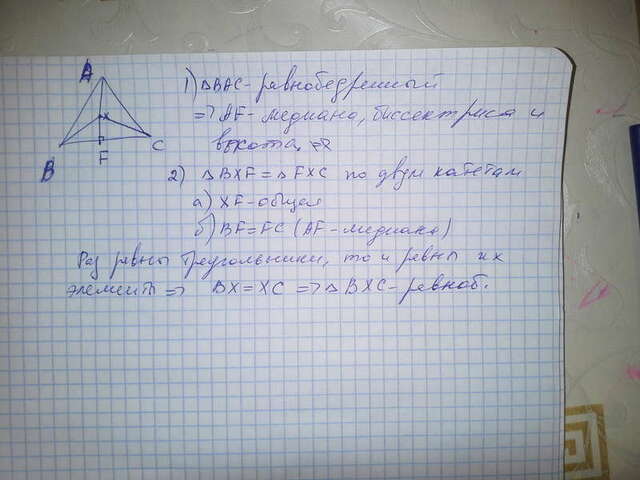 A
1) △BAC - равнобедренный
=> AF - медиана, биссектриса и
высота, =>
x
B
C
F
2) △BXF = △FXC по двум катетам
а) XF - общая
б) BF = FC (AF - медиана)
Раз равны треугольники, то и равны их
элементы => BX = XC => △BXC - равноб.